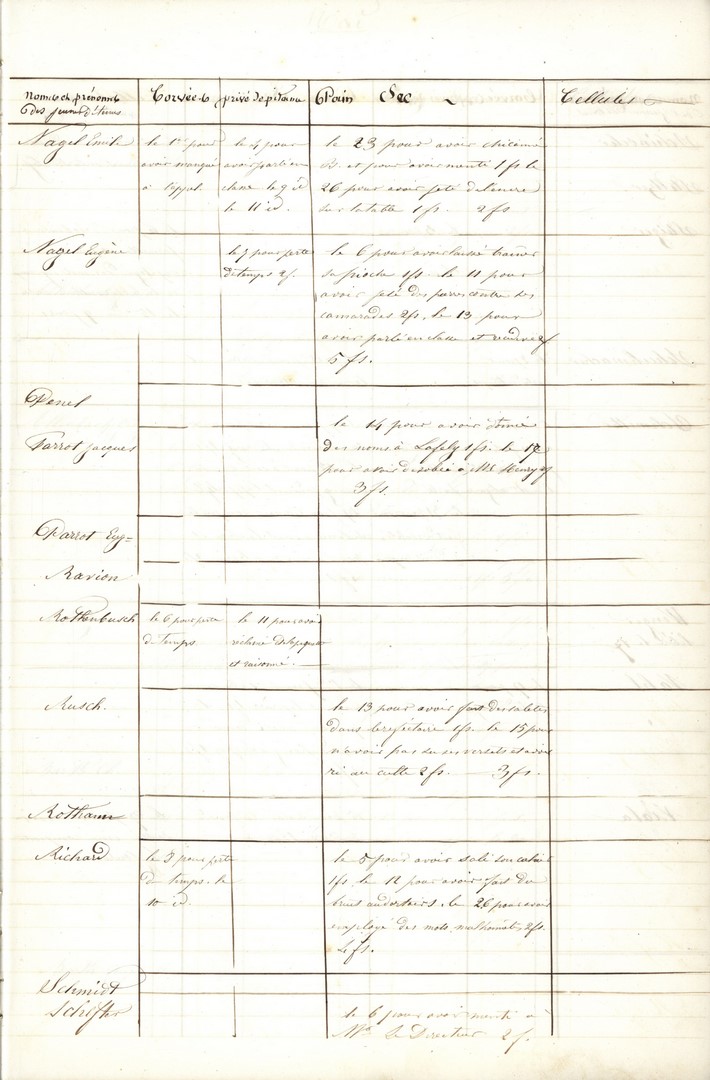 noms et prénoms Corvées privé de pitance Pain Sec Cellules
des jeunes détenus
Nagel Emile
le 1er pour
avoir manqué
à l'appel.
le 4 pour
avoir parlé en
classe le 9 id
le 11 id.
le 23 pour avoir chicané
R. et pour avoir menti 1 fs le
26 pour avoir jeté de l'encre
sur la table 1 fs. 2 fs
Nagel Eugène
le 7 pour perte
de temps 2 f.
le 6 pour avoir laissé trainer
sa pioche 1 fs. le 11 pour
avoir jeté des pierres contre ses
camarades 2 fs, le 13 pour
avoir parlé en classe et 2 f
5 fs.
Penel
Parrot Jacques
le 14 pour avoir donné
des noms à Lafely 1 fs. le 17
pour avoir désobéi à Mr Henry 2 f
3 fs.
Parrot Eug=
Ravion
Rothenbusch
le 6 pour perte
de temps.
le 11 pour avoir
réclamé
et raisonné.
Rusch.
le 13 pour avoir fait des saletés
dans le réfectoire 1 fs. le 15 pour
n'avoir pas su ses versets et avoir
ri au culte 2 fs. — 3 fs.
Rothann
Richard
le 3 pour perte
de temps. le
10 id.
le 5 pour avoir sali son cahier
1 fs. le 12 pour avoir fait du
bruit au dortoir. le 26 pour avoir
employé des mots malhonnêtes 2 fs.
4 fs.
Schmidt
Schiffer
le 6 pour avoir menti à
Mr le Directeur 2 f.